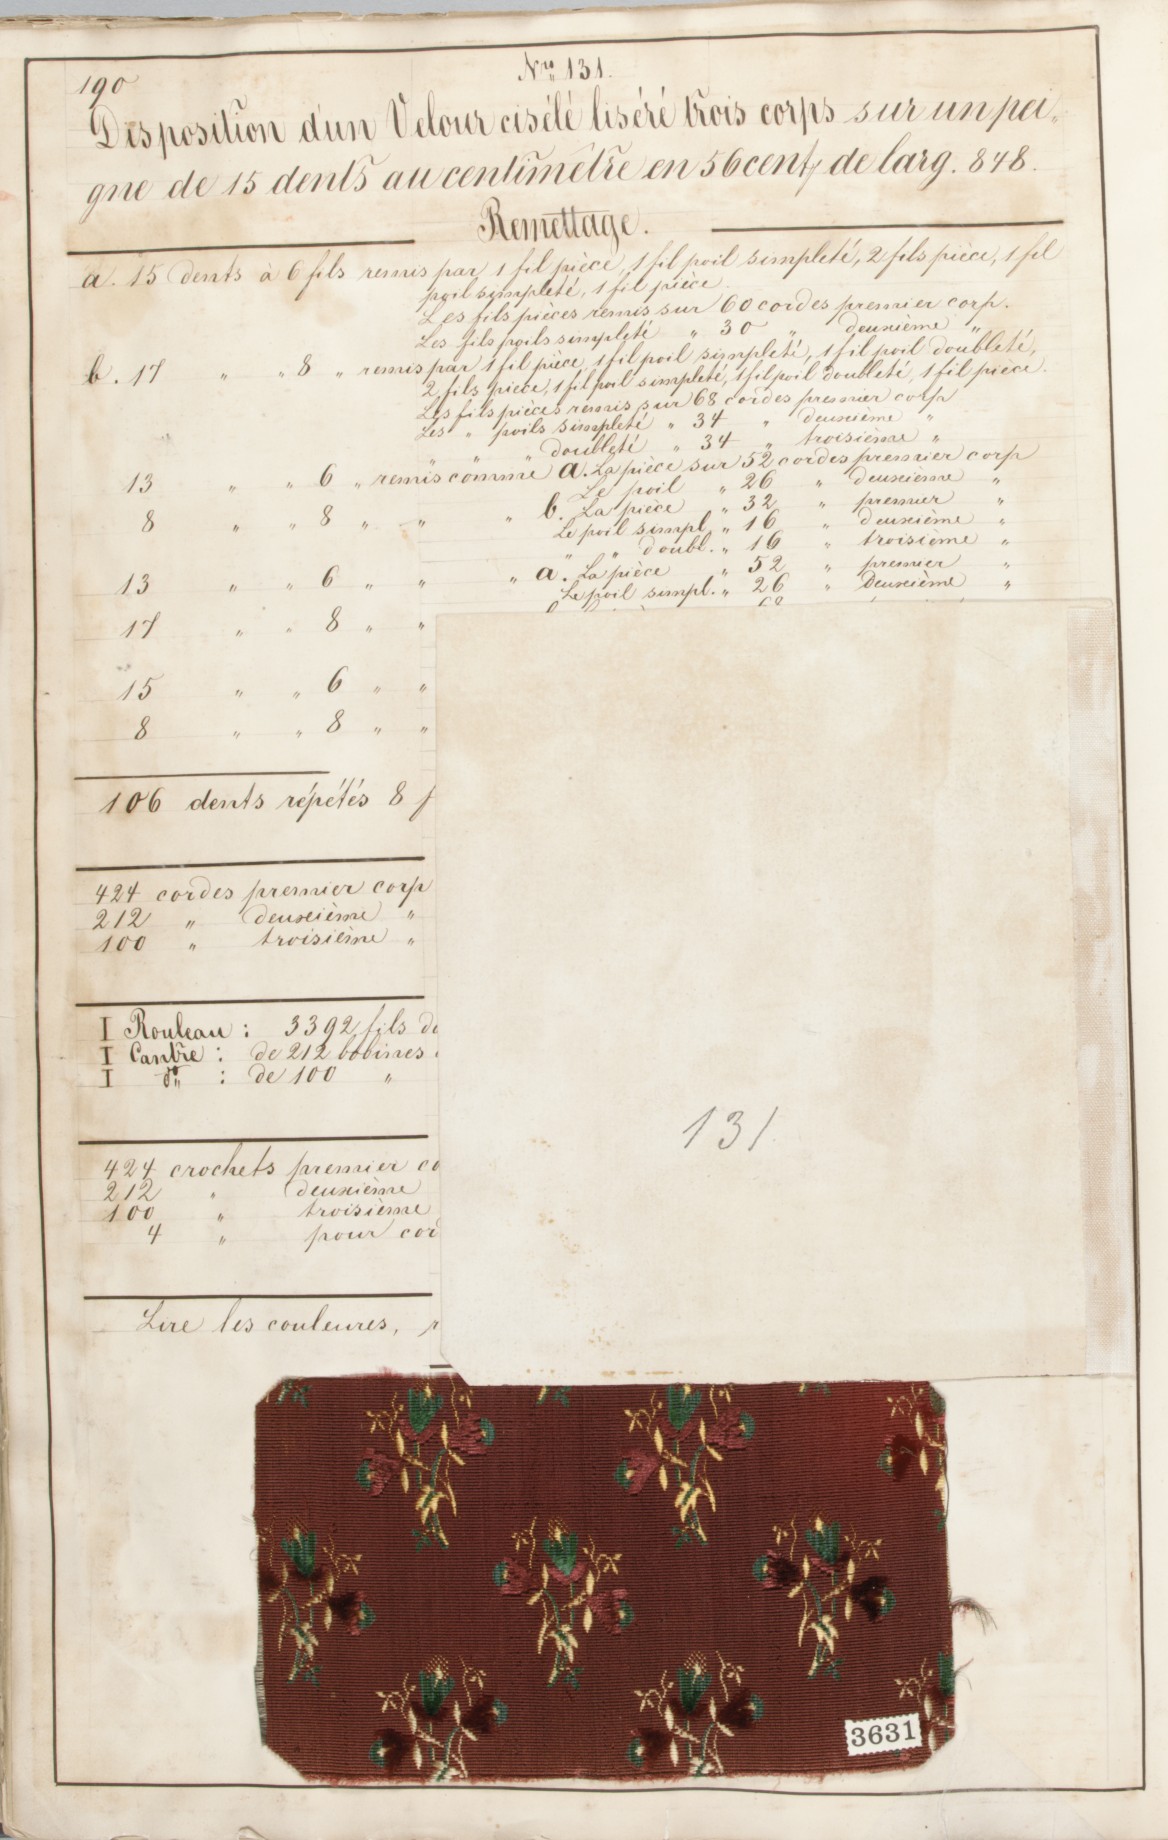 190
Nro 131.
Disposition d'un Velour ciselé liséré trois corps sur un pei„
gne de 15 dents au centimêtre en 56 cent, de larg. 848.
Remettage.
a. 15 dents à 6 fils remis par 1 fil pièce, 1 fil poil simpleté, 2 fils pièce, 1 fil
poil simpleté, 1 fil pièce.
Les fils pièces remis sur 60 cordes premier corp.
Les fils poils simpleté „ 30 „ deuxième „
b. 17 „ „ 8 „ remis par 1 fil pièce, 1 fil poil simpleté, 1 fil poil doubleté,
2 fils pièce, 1 fil poil simpleté, 1 fil poil doubleté, 1 fil pièce.
Les fils pièces remis sur 68 cordes premier corp
Les „ poils simpleté „ 34 „ deuxième „
„ „ „ doubleté „ 34 „ troisième „
13 „ „ 6 „ remis comme a. La pièce sur 52 cordes premier corp
Le poil „ 26 „ deuxième „
8 „ „ 8 „ „ „ b. La pièce „ 32 „ premier „
Le poil simpl. „ 16 „ deuxième „
„ „ doubl. „ 16 „ troisième „
13 „ „ 6 „ „ „ a. La pièce „ 52 „ premier „
Le poil simpl. „ 26 „ deuxième „
17 „ „ 8 „ „
15 „ „ 6 „ „
8 „ „ 8 „ „
106 dents répétés 8 f
424 cordes premier corp
212 „ deuxième „
100 „ troisième „
I Rouleau : 3392 fils de
I Cantre : de 212 bobines
I do„ : de 100 „
424 crochets premier co
212 „ deuxième
100 „ troisième
4 „ pour cor
Lire les couleures,
131
3631